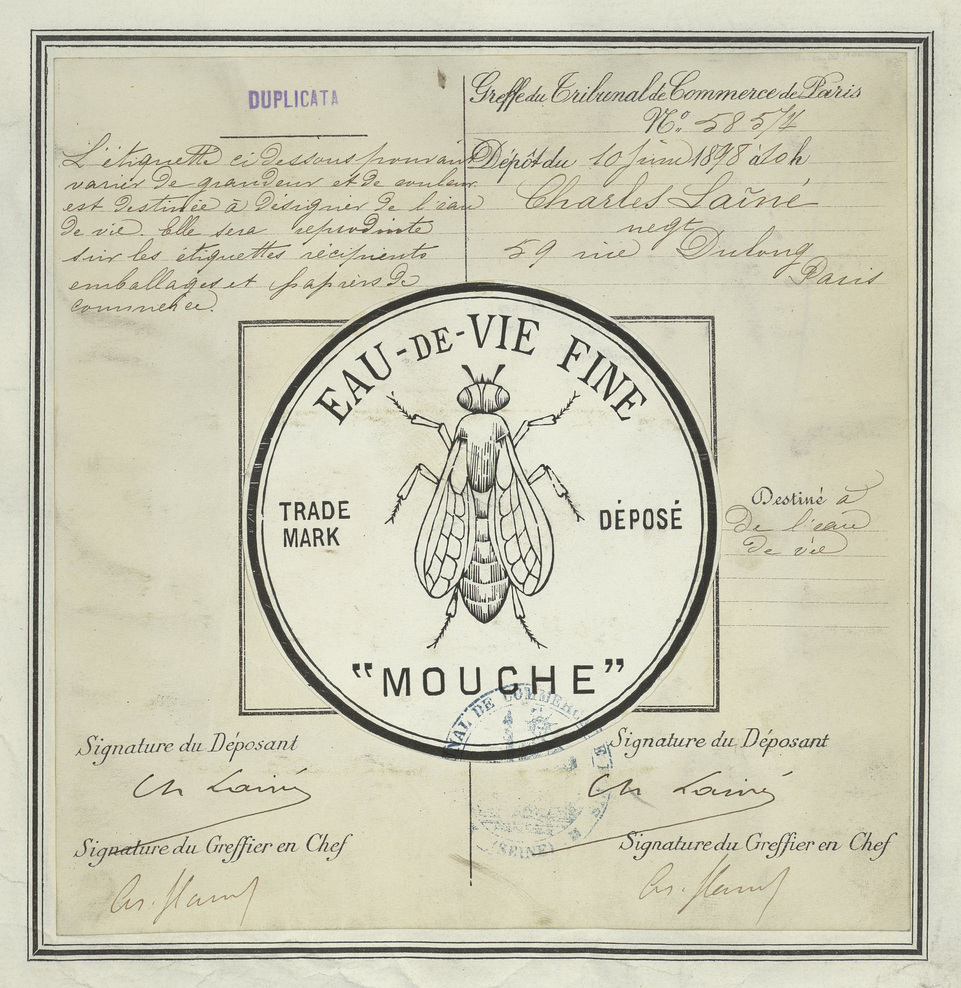 DUPLICATA
L'étiquette ci dessous pouvant
varier de grandeur et de couleur
est destinée à désigner de l'eau
de vie. Elle sera reproduite
sur les étiquettes récipients
emballages et papiers de
commerce.
Greffe du Tribunal de Commerce de Paris
N° 58574
Dépôt du 10 juin 1898 à 10 h
Charles Lainé
negt
59 rue Dulong
Paris
EAU-DE-VIE FINE
TRADE
MARK
DÉPOSÉ
"MOUCHE"
Destiné à
De l'eau
de vie
NAL DE COMMERCE
(SEINE)
Signature du Déposant
Ch Lainé
Signature du Greffier en Chef
Signature du Déposant
Ch Lainé
Signature du Greffier en Chef